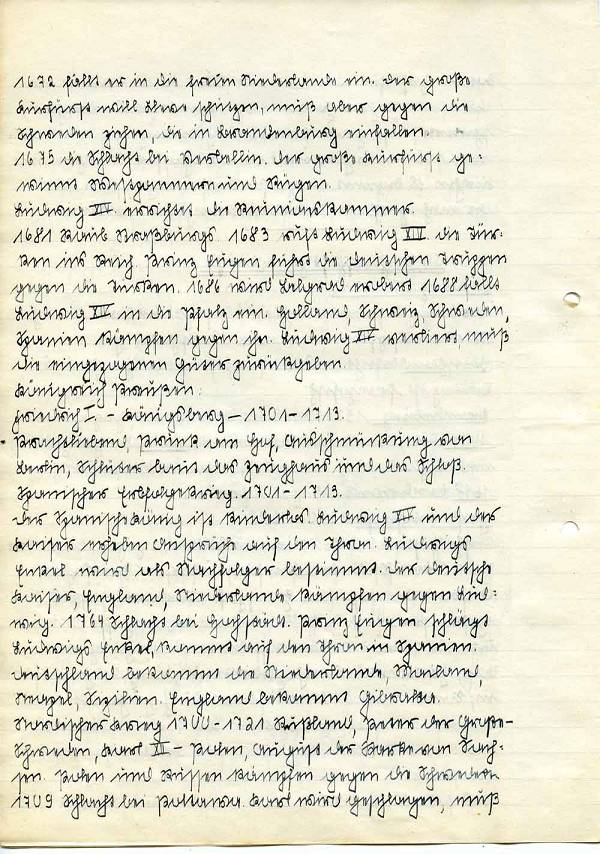 1672 fällt er in die freien Niederlande ein. Der Große
Kurfürst will Kleve schützen, muß aber gegen die
Schweden ziehen, die in Brandenburg einfallen.
1675 die Schlacht bei Fehrbellin. Der große Kurfürst ge-
winnt Westpommern und Rügen.
Ludwig XIV. errichtet die Reunionskammer.
1681 Raub Straßburgs 1683 ruft Ludwig XIV. die Tür-
ken ins Reich Prinz Eugen führt die deutschen Truppen
gegen die Türken. 1686 wird Belgrad erobert 1688 fällt
Ludwig XIV in die Pfalz ein. Holland, Schweiz, Schweden,
Spanien kämpfen gegen ihn. Ludwig XIV verliert, muß
die eingezogenen Güter zurückgeben.
Königreich Preußen:
Friedrich I. - Königsberg - 1701 - 1713.
Prachtliebend, Prunk am Hof, Ausschmückung von
Berlin, Schlüter baut das Zeughaus und das Schloß.
Spanischer Erbfolgekrieg. 1701 - 1713.
Der Spanische König ist kinderlos. Ludwig XIV und der
Kaiser erheben Ansprüche auf den Thron. Ludwigs
Enkel wird als Nachfolger bestimmt. Der deutsche
Kaiser, England, Niederlande kämpfen gegen Lud-
wig. 1704 Schlacht bei Hochstädt. Prinz Eugen schlägt
Ludwigs Enkel, kommt auf den Thron in Spanien.
Deutschland bekommt die Niederlande, Mailand,
Neapel, Sizilien. England bekommt Gibraltar.
Nordischer Krieg 1700 - 1721 Rußland, Peter der Große -
Schweden, Karl XII - Polen, August der Starke von Sach-
sen. Polen und Russen kämpfen gegen die Schweden
1709 Schlacht bei Poltawa. Karl wird geschlagen, muß